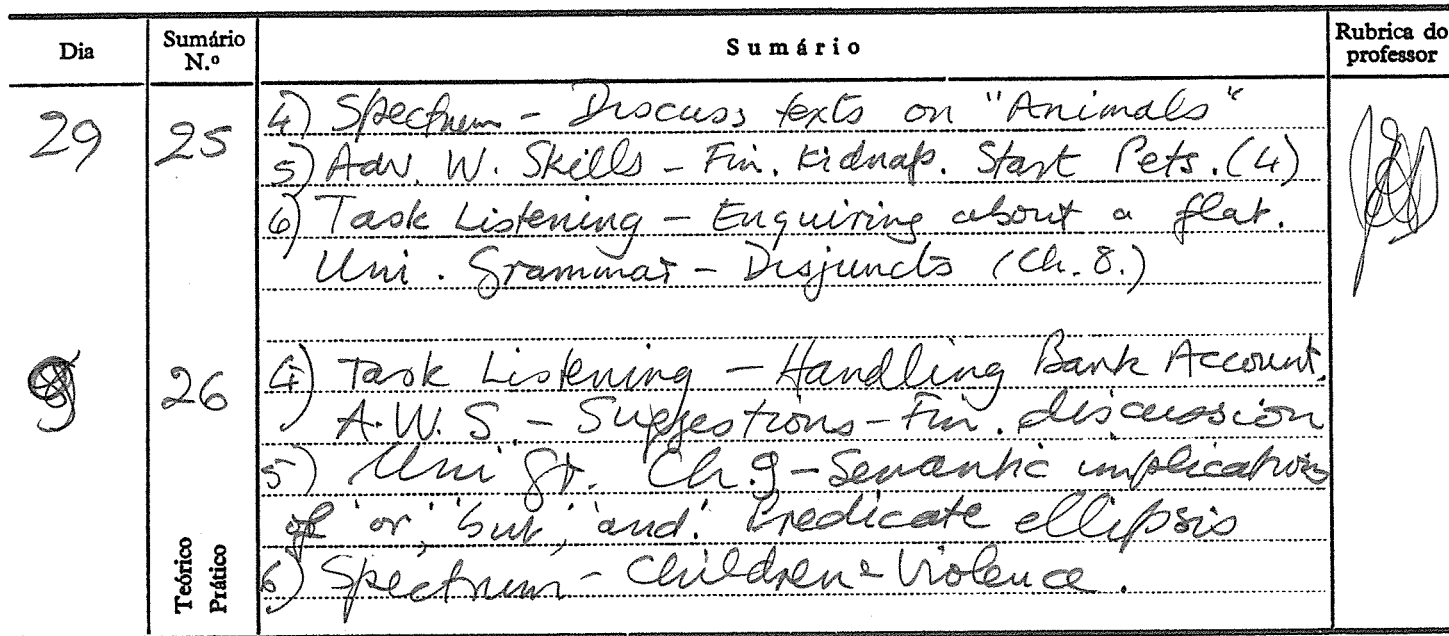 Dia Sumário N.º Sumário Rubrica do professor
29 25 4) Spectrum - Discuss texts on "Animals"
5) Adv. W. Skills - Fin. Kidnap. Start Pets. (4)
6) Task Listening - Enquiring about a flat.
Uni. Grammar - Disjuncts (Ch. 8.)
26 4) Task Listening - Handling Bank Account.
A.W.S. - Suggestions - Fin. discussion
5) Uni Gr. Ch. 9 - Semantic implications
of 'or', 'but', 'and'. Predicate ellipsis
6) Spectrum - Children & Violence.
Teórico
Prático